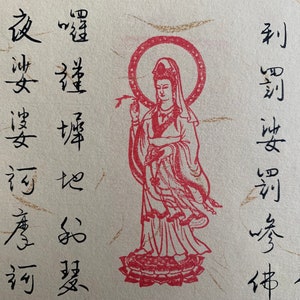 利罰娑罰嘇佛
囉謹墀地利瑟
夜娑婆訶摩訶